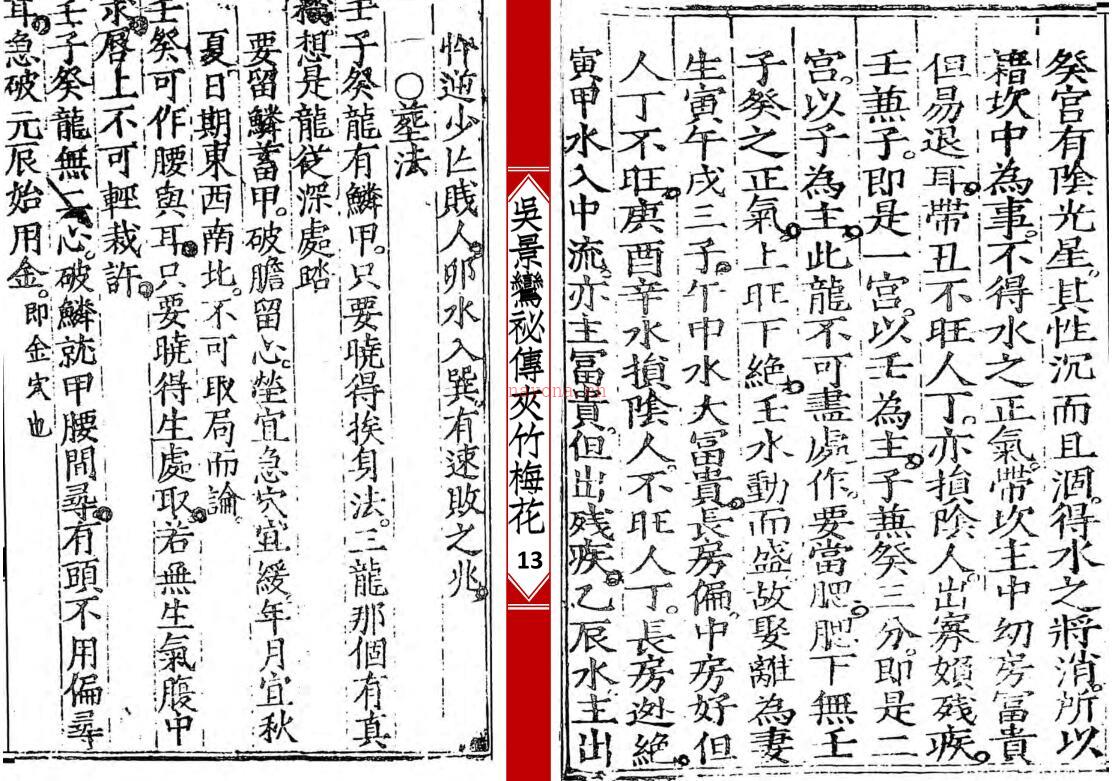 癸宮有陰光星。其性沉而且涸。得水之將消。所以
藉坎中為事。不得水之正氣。帶坎主中幼房冨貴
但易退耳。帶丑不旺人丁。亦損陰人出寡婦殘疾。
壬兼子。即是一宮。以壬為主。子兼癸三分。即是二
宮。以子為主。此龍不可盡處作。要當肥。肥下無壬
子癸之正氣。上旺下絶。壬水動而盛故娶離為妻
生寅午戌三子。午中水大富貴。長房偏。中房好但
人丁不旺。庚酉辛水損陰人。不旺人丁。長房迯絶。
寅甲水入中流。亦主冨貴。但出殘疾。乙辰水主出
忤逆少亡賤人。卯水入巽。有速敗之兆。
○塟法
壬子癸龍有鱗甲。只要曉得挨身法。三龍那個有真
機。想是龍從深處踏
要留鱗蓄甲。破膽留心。塋宜急穴宜緩年月宜秋
夏。日期東西南北。不可取局而論。
壬癸可作腰與耳。只要曉得生處取。若無生氣腹中
求。唇上不可輕裁許。
壬子癸龍無二心。破鱗就甲腰間尋。有頭不用偏尋
耳。急破元辰始用金。即金穴也
吳景鸞祕傳夾竹梅花
13